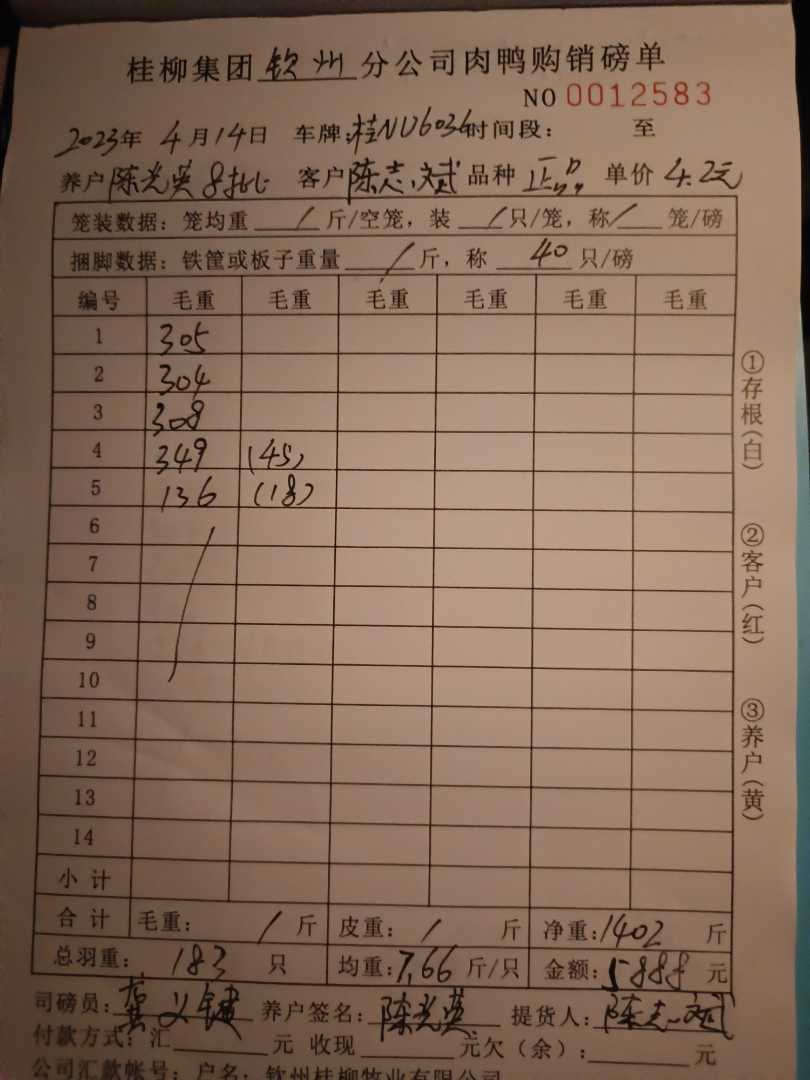 桂柳集团钦州分公司肉鸭购销磅单
NO 0012583
2023年4月14日 车牌:桂NU6036时间段: 至
养户陈光英8批 客户陈志斌品种正品 单价4.2元
笼装数据:笼均重/斤/空笼,装/只/笼,称/笼/磅
捆脚数据:铁筐或板子重量/斤,称40只/磅
编号 毛重 毛重 毛重 毛重 毛重 毛重
1 305
2 304
3 308
4 349 (45)
5 136 (18)
6
7
8
9
10
11
12
13
14
小计
合计 毛重:/斤 皮重:/斤 净重:1402斤
总羽重:183只 均重:7.66斤/只 金额:5888元
司磅员:龚义键 养户签名:陈光英 提货人:陈志斌
付款方式:汇 元 收现 元欠(余): 元
公司汇款帐号:户名:钦州桂柳牧业有限公司
①存根(白)
②客户(红)
③养户(黄)